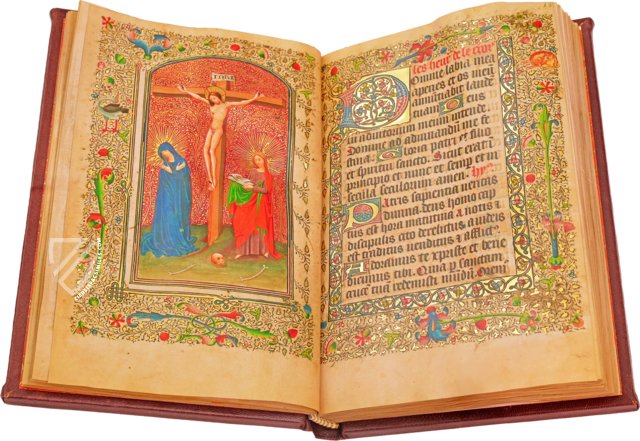 INRI
les heur' de le croix
Domine labia mea
aperies et os meū
annūtiabit laudē
tuam Deus
in adiutorium meum intende
Domine ad adiuvandū me fe
stina Gloria patri et filio
et spiritui sancto Sicut erat ī
principio et nunc et semp et in
secula seculorum amen. hy
Patris sapientia veritas
divina deus homo cap
tus est hora matutina a notis
discipulis cito derelictus
est traditus venditus et afflict'
Adoramus te xpiste et bene
dicimus tibi Quia p sanctam
crucē tuā redemisti mūdū